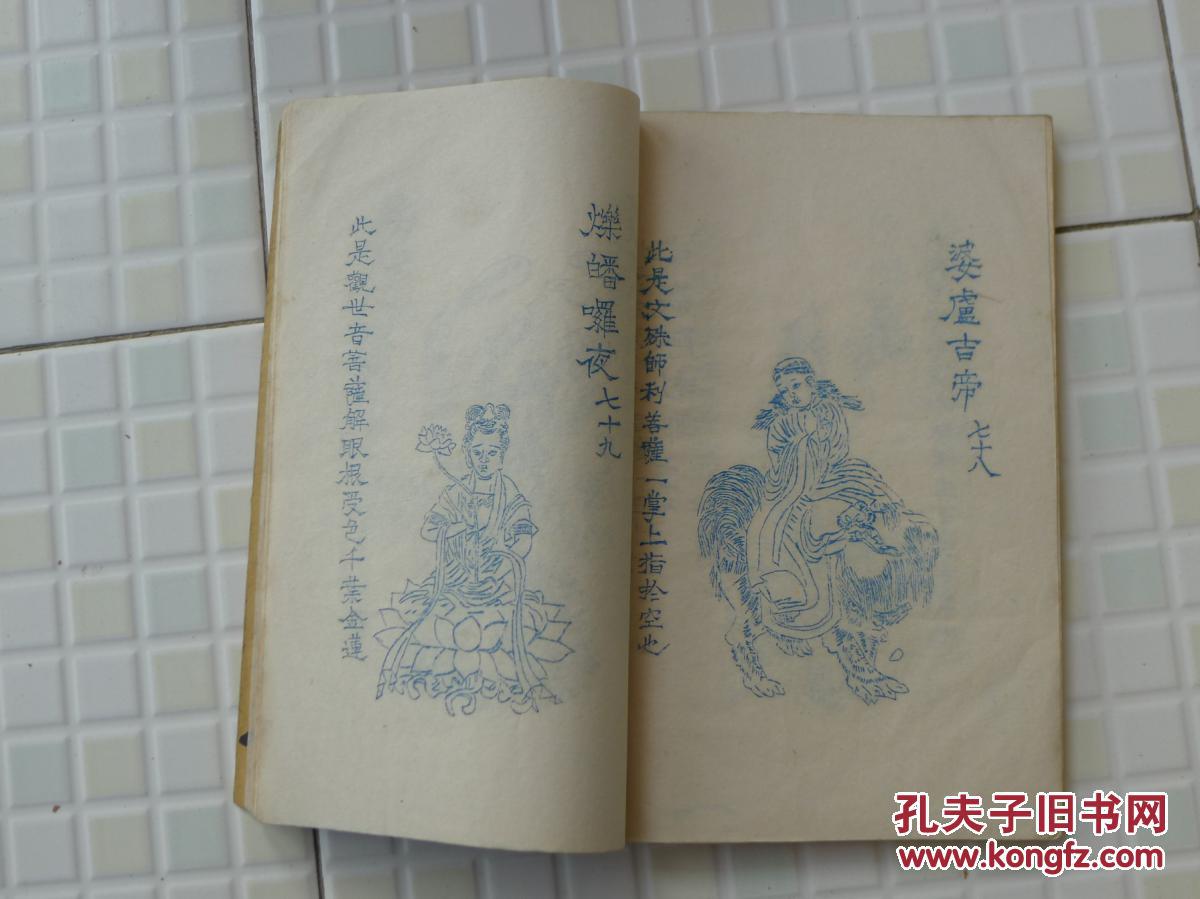 婆盧吉帝 七十八
此是文殊師利菩薩一掌上指於空也
爍皤囉夜 七十九
此是觀世音菩薩解眼根受色千葉金蓮
孔夫子旧书网
www.kongfz.com